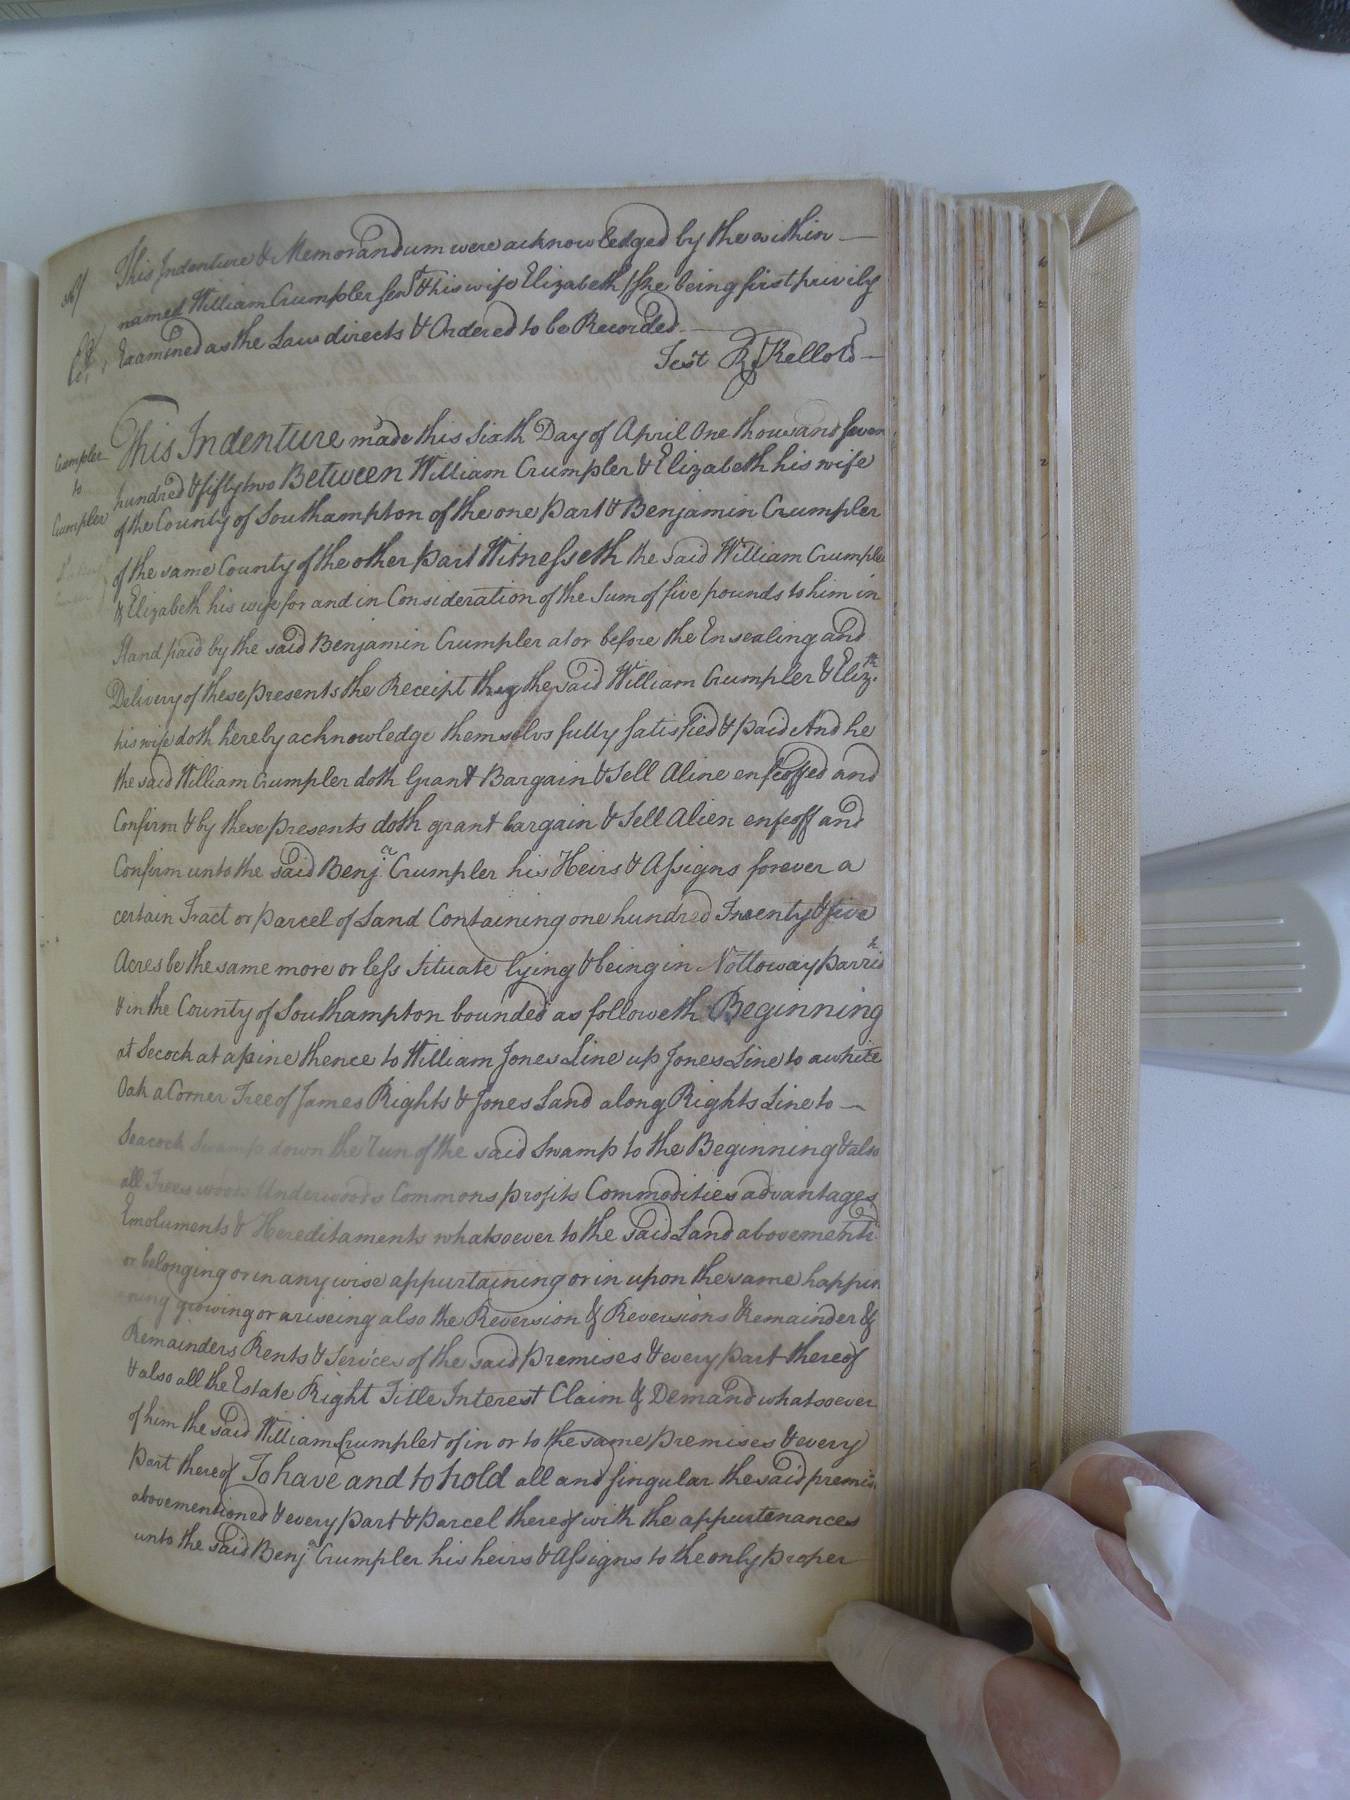 This Indenture & Memorandum were acknowledged by the within
named William Crumpler Senr. & his wife Elizabeth she being first privily
Examined as the Law directs & Ordered to be Recorded
Test R Kello
Crumpler
to
Crumpler
This Indenture made this Sixth Day of April One thousand seven
hundred & fifty two Between William Crumpler & Elizabeth his wife
of the County of Southampton of the one Part & Benjamin Crumpler
of the same County of the other part Witnesseth the said William Crumpler
& Elizabeth his wife for and in Consideration of the Sum of five pounds to him in
Hand paid by the said Benjamin Crumpler at or before the Ensealing and
Delivery of these presents the Receipt the said William Crumpler & Elizth.
his wife doth hereby acknowledge themselvs fully satisfied & paid And he
the said William Crumpler doth Grant Bargain & Sell Aline enfeoffed and
Confirm & by these presents doth grant bargain & Sell Alien enfeoff and
Confirm unto the said Benja. Crumpler his Heirs & Assigns forever a
certain Tract or parcel of Land Containing one hundred Twenty & five
Acres be the same more or less Situate lying & being in Nottoway Parrish
& in the County of Southampton bounded as followeth Beginning
at Secock at a pine thence to William Jones Line up Jones Line to a white
Oak a Corner Tree of James Rights & Jones Land along Rights Line to
Seacock Swamp down the run of the said Swamp to the Beginning & also
all Trees woods Underwoods Commons profits Commodities advantages
Emoluments & Hereditaments whatsoever to the said Land abovementd.
or belonging or in any wise appurtaining or in upon the same happin
ning growing or ariseing also the Reversion & Reversions Remainder &
Remainders Rents & Services of the said premises & every part thereof
& also all the Estate Right Title Interest Claim & Demand whatsoever
of him the said William Crumpler of in or to the same premises & every
part thereof To have and to hold all and singular the said premis
abovementioned & every part & parcel thereof with the appurtenances
unto the said Benja. Crumpler his heirs & Assigns to the only proper